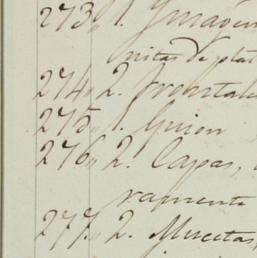 273,, 1. Ymagen
nitas de plat
274,, 2. Frontale
275,, 1. Guion
276,, 2. Capas,
ramente
277,, 2. Mucetas,